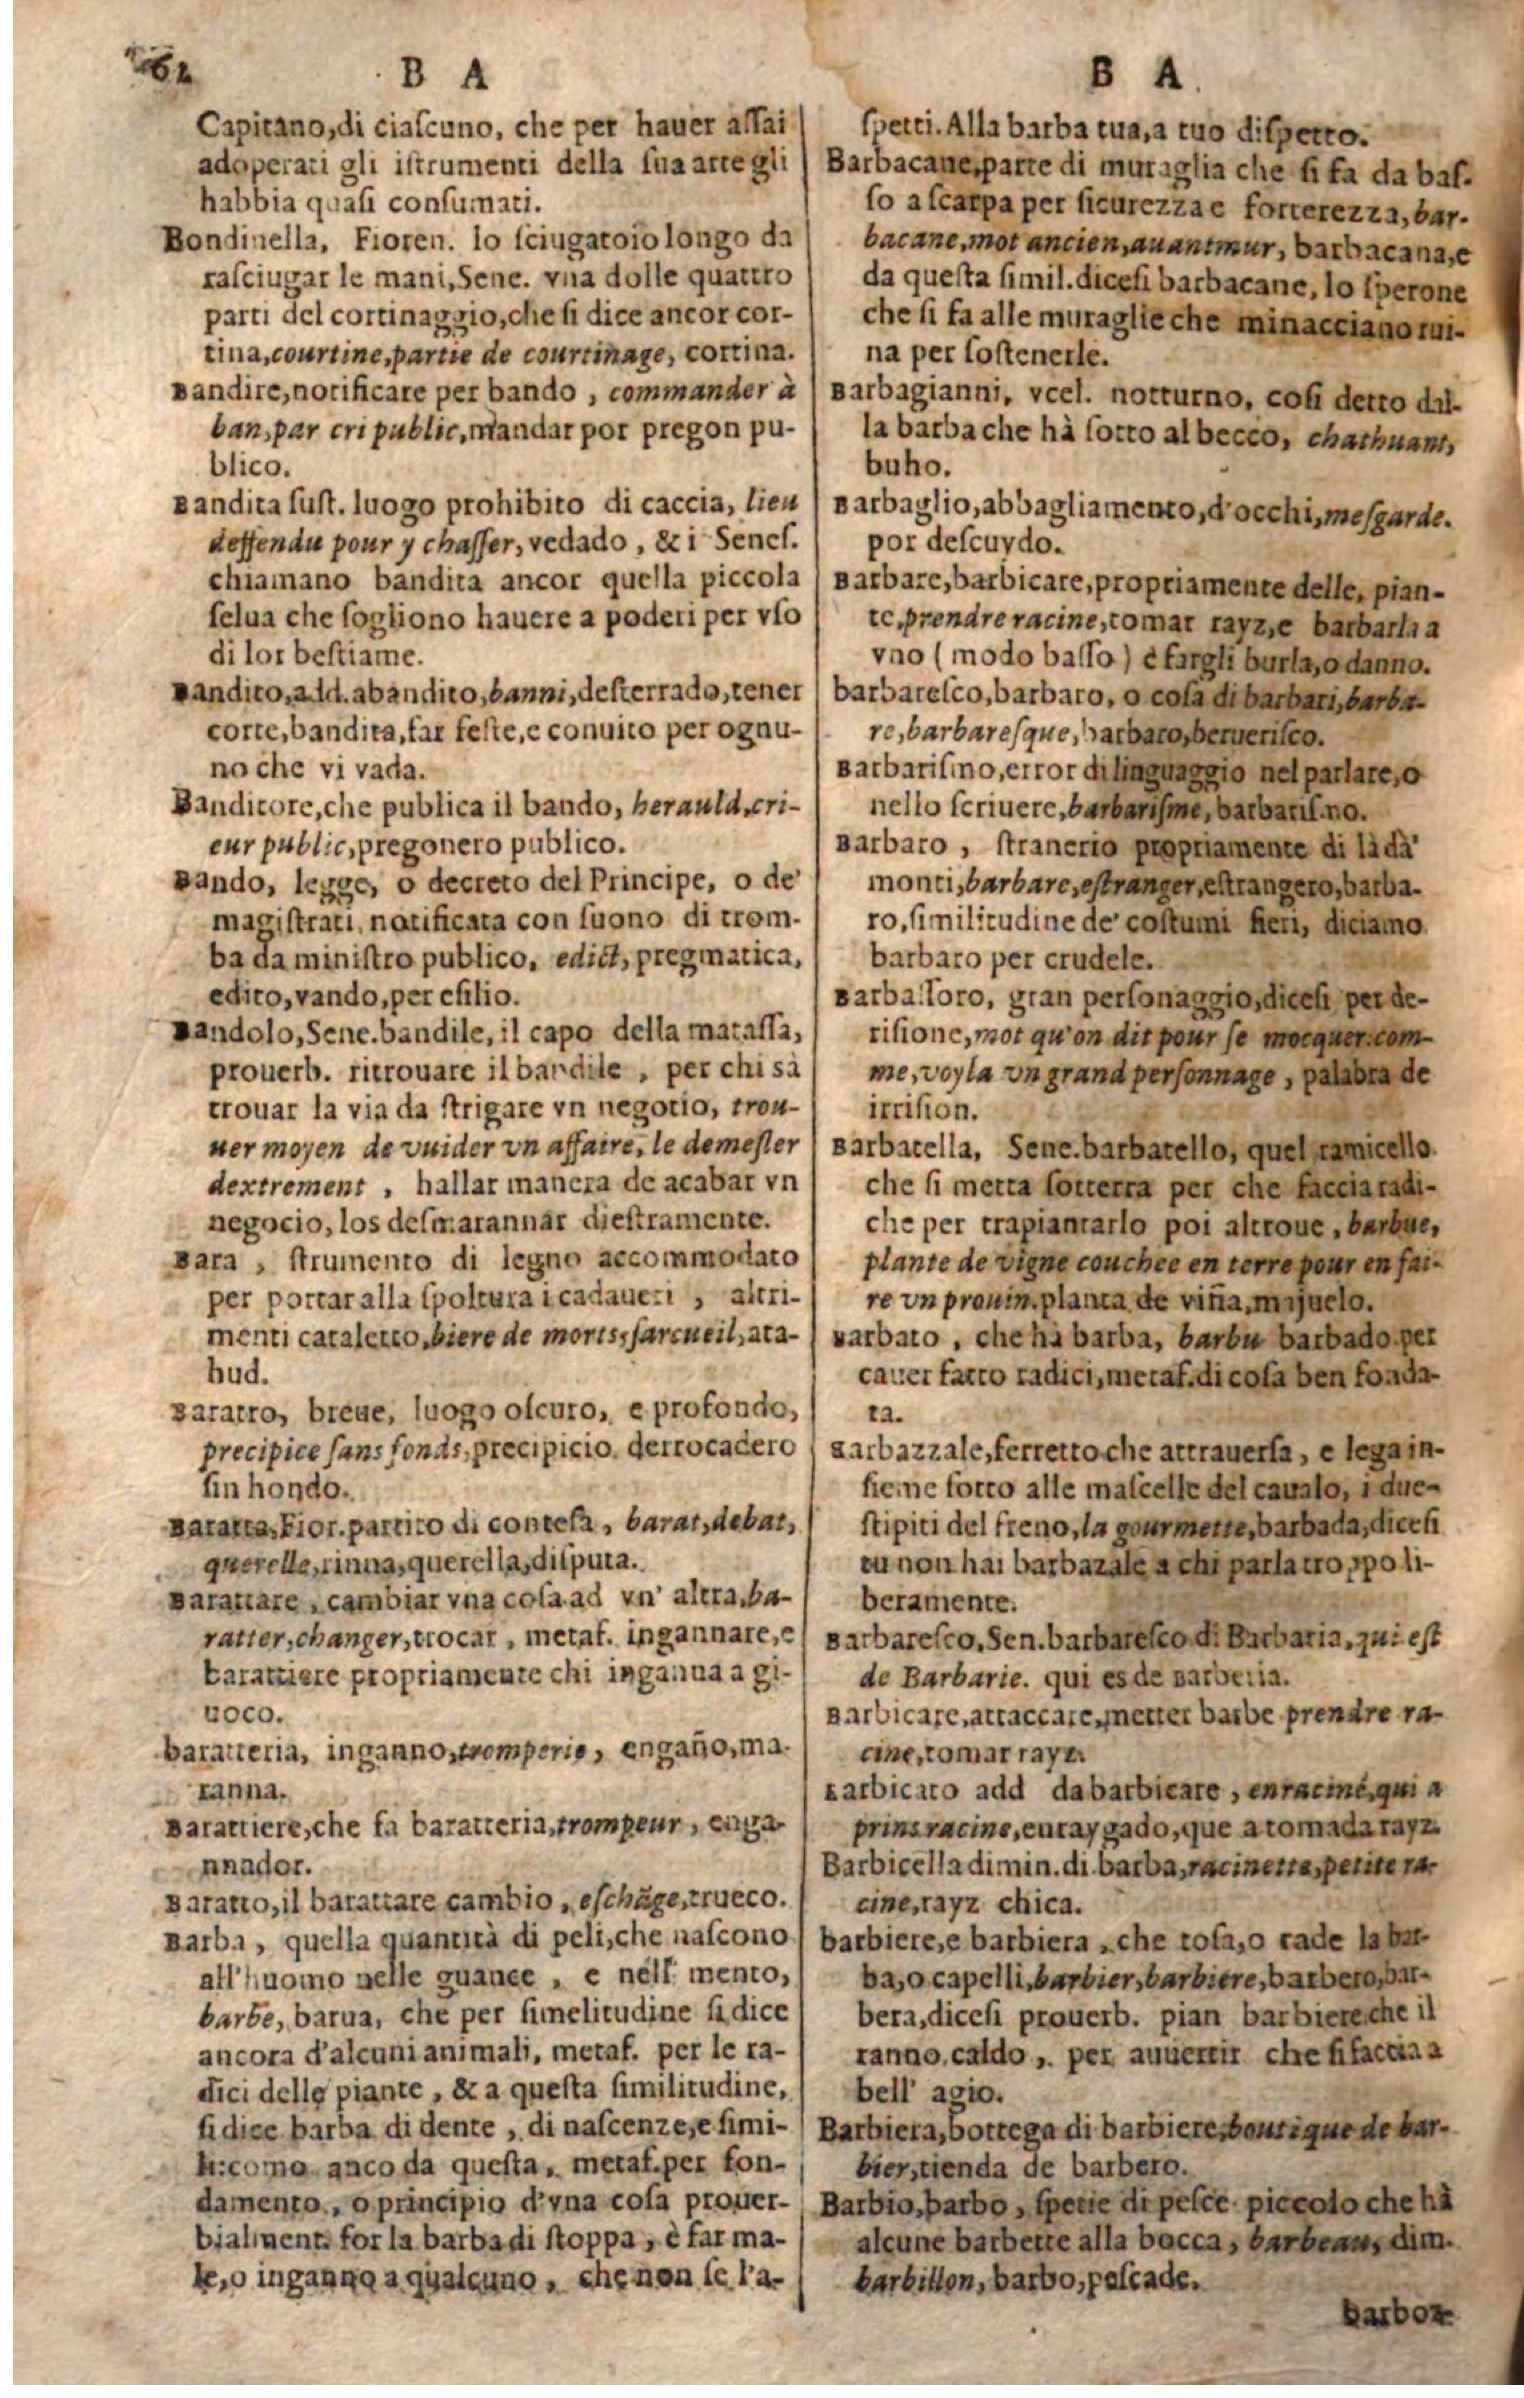 62
B A
Capitano,di ciaſcuno, che per hauer aſſai
adoperati gli iſtrumenti della ſua arte gli
habbia quaſi conſumati.
Bondinella, Fioren. lo ſciugatoio longo da
raſciugar le mani,Sene. vna dolle quattro
parti del cortinaggio,che ſi dice ancor cor-
tina,courtine,partie de courtinage, cortina.
Bandire,notificare per bando , commander à
ban,par cri public,mandar por pregon pu-
blico.
Bandita ſuſt. luogo prohibito di caccia, lieu
deffendu pour y chaſſer, vedado , & i Seneſ.
chiamano bandita ancor quella piccola
ſelua che ſogliono hauere a poderi per vſo
di lor beſtiame.
Bandito,add.abandito,banni,deſterrado,tener
corte,bandita,far feſte,e conuito per ognu-
no che vi vada.
Banditore,che publica il bando, herauld,cri-
eur public,pregonero publico.
Bando, legge, o decreto del Principe, o de'
magiſtrati, notificata con ſuono di trom-
ba da miniſtro publico, edict, pregmatica,
edito,vando,per eſilio.
Bandolo,Sene.bandile, il capo della mataſſa,
prouerb. ritrouare il bandile , per chi sà
trouar la via da ſtrigare vn negotio, trou-
uer moyen de vuider vn affaire, le demeſler
dextrement , hallar manera de acabar vn
negocio, los deſmarannar dieſtramente.
Bara , ſtrumento di legno accommodato
per portar alla ſpoltura i cadaueri , altri-
menti cataletto,biere de morts,ſarcueil,ata-
hud.
Baratro, breue, luogo oſcuro, e profondo,
precipice ſans fonds,precipicio. derrocadero
ſin hondo.
Baratta,Fior.partito di conteſa , barat,debat,
querelle,rinna,querella,diſputa.
Barattare , cambiar vna coſa ad vn' altra,ba-
ratter,changer,trocar , metaf. ingannare,e
barattiere propriamente chi inganna a gi-
uoco.
baratteria, inganno,tromperie, engaño,ma-
ranna.
Barattiere,che fa baratteria,trompeur , enga-
nnador.
Baratto,il barattare cambio , eſchãge,trueco.
Barba , quella quantità di peli,che naſcono
all'huomo nelle guance , e nell' mento,
barbe, barua, che per ſimelitudine ſi dice
ancora d'alcuni animali, metaf. per le ra-
dici delle piante , & a queſta ſimilitudine,
ſi dice barba di dente , di naſcenze,e ſimi-
li:como anco da queſta, metaf.per fon-
damento , o principio d'vna coſa prouer-
bialment. for la barba di ſtoppa , è far ma-
le,o inganno a qualcuno , che non ſe l'a-
B A
ſpetti.Alla barba tua,a tuo diſpetto.
Barbacane,parte di muraglia che ſi fa da baſ-
ſo a ſcarpa per ſicurezza e forterezza,bar-
bacane,mot ancien,auantmur, barbacana,e
da queſta ſimil.diceſi barbacane, lo ſperone
che ſi fa alle muraglie che minacciano rui-
na per ſoſtenerle.
Barbagianni, vcel. notturno, coſi detto dal-
la barba che hà ſotto al becco, chathuant,
buho.
Barbaglio,abbagliamento,d'occhi,meſgarde.
por deſcuydo.
Barbare,barbicare,propriamente delle, pian-
te,prendre racine,tomar rayz,e barbarla a
vno ( modo baſſo ) è fargli burla,o danno.
barbareſco,barbaro, o coſa di barbari,barba-
re,barbareſque,barbaro,beruerisco.
Barbariſmo,error di linguaggio nel parlare,o
nello ſcriuere,barbariſme, barbariſmo.
Barbaro , ſtranerio propriamente di là dà'
monti,barbare,eſtranger,eſtrangero,barba-
ro,ſimilitudine de' coſtumi fieri, diciamo
barbaro per crudele.
Barbaſſoro, gran perſonaggio,diceſi per de-
riſione,mot qu'on dit pour ſe mocquer:com-
me,voyla vn grand perſonnage , palabra de
irriſion.
Barbatella, Sene.barbatello, quel ramicello
che ſi metta ſotterra per che faccia radi-
che per trapiantarlo poi altroue , barbue,
plante de vigne couchee en terre pour en fai-
re vn prouin.planta de viña,majuelo.
Barbato , che hà barba, barbu barbado per
cauer fatto radici,metaf.di coſa ben fonda-
ta.
Barbazzale,ferretto che attrauerſa, e lega in-
ſieme ſotto alle maſcelle del caualo, i due
ſtipiti del freno,la gourmette,barbada,diceſi
tu non hai barbazale a chi parla troppo li-
beramente.
Barbareſco,Sen.barbareſco di Barbaria,qui eſt
de Barbarie. qui es de Barberia.
Barbicare,attaccare,metter barbe prendre ra-
cine,tomar rayz.
Barbicato add da barbicare , enraciné,qui a
prins racine,enraygado,que a tomada rayz.
Barbicella dimin.di barba,racinette,petite ra-
cine,rayz chica.
barbiere,e barbiera , che toſa,o rade la bar-
ba,o capelli,barbier,barbiere,barbero,bar-
bera,diceſi prouerb. pian barbiere che il
ranno caldo , per auuertir che ſi faccia a
bell' agio.
Barbiera,bottega di barbiere,boutique de bar-
bier,tienda de barbero.
Barbio,barbo , ſpetie di peſce piccolo che hà
alcune barbette alla bocca , barbeau, dim.
barbillon, barbo,peſcade.
barboz-